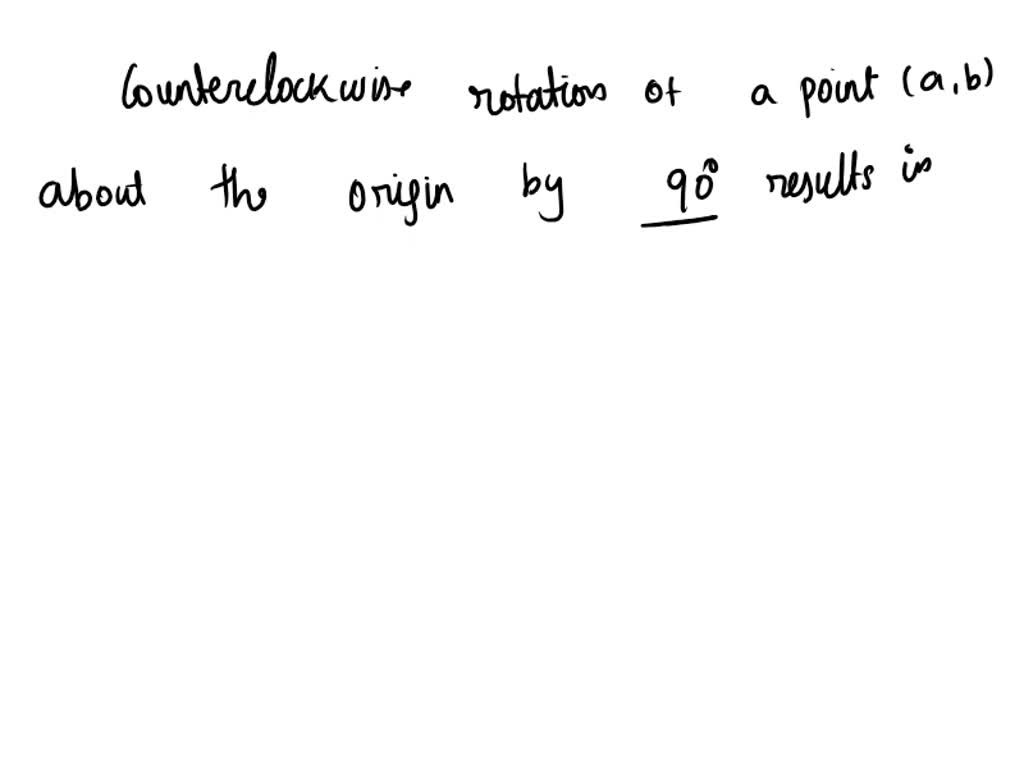 Counterclockwise rotation of a point (a,b)
about the origin by 90° results in